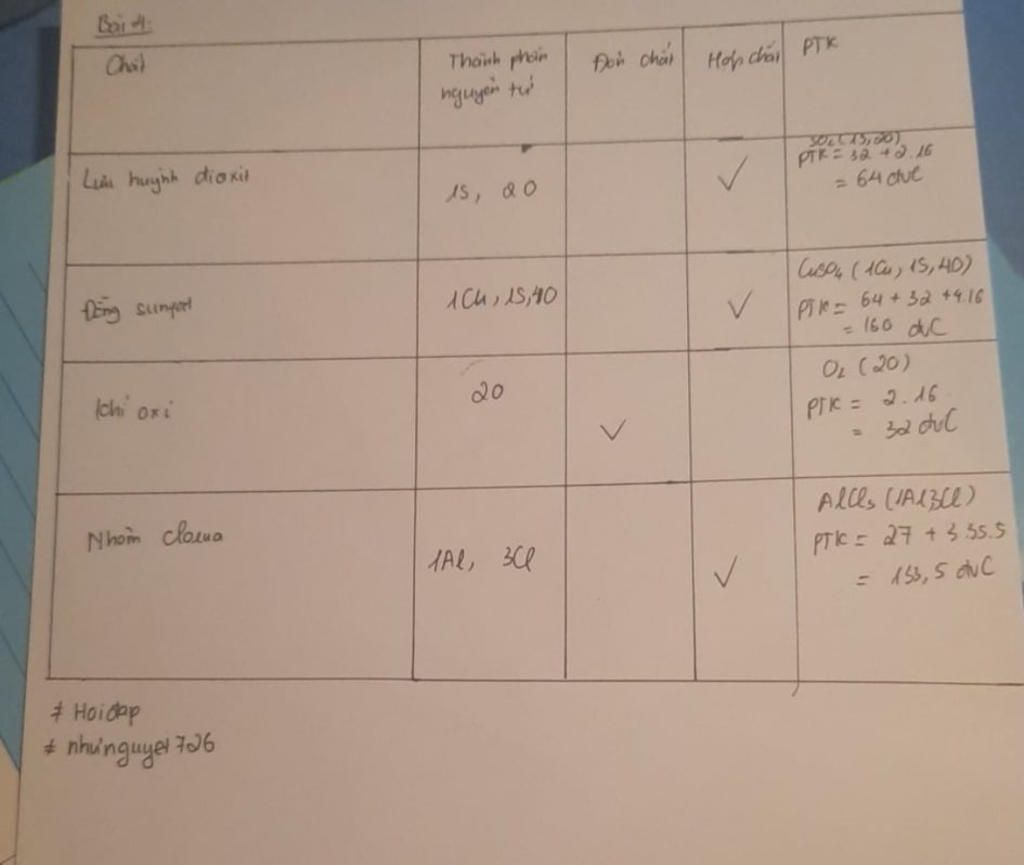 Bài 4:
Chất
Thành phần
nguyên tử
Đơn chất
Hợp chất
PTK
Lưu huỳnh dioxit
1S, 2O
✓
SO₂ (1S, 2O)
PTK = 32 + 2.16
= 64 đvC
Đồng sunpat
1Cu, 1S, 4O
✓
CuSO₄ (1Cu, 1S, 4O)
PTK = 64 + 32 + 4.16
= 160 đvC
Khí oxi
2O
✓
O₂ (2O)
PTK = 2.16
= 32 đvC
Nhôm clorua
1Al, 3Cl
✓
AlCl₃ (1Al 3Cl)
PTK = 27 + 3.35.5
= 133,5 đvC
# Hoidap
# nhưnguyet726